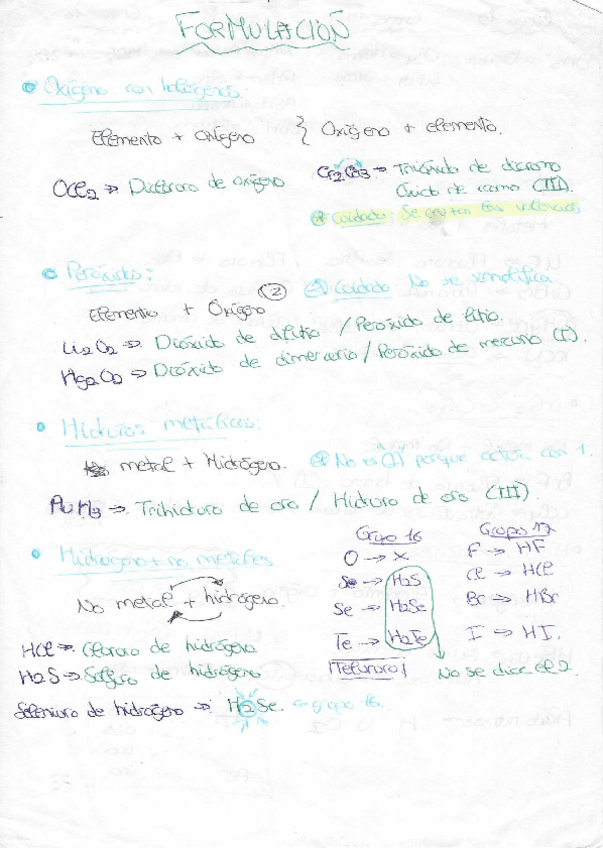 FORMULACIÓN
Oxígeno con halógenos:
Elemento + Oxígeno } Oxígeno + elemento.
OCl2 → Dicloruro de oxígeno
Cr2O3 → Trióxido de dicromo
Óxido de cromo (III).
* Cuidado: Se cruzan las valencias
Peróxidos:
Elemento + Oxígeno (2)
* Cuidado No se simplifica
Li2O2 → Dióxido de dilitio / Peróxido de litio.
Hg2O2 → Dióxido de dimercurio / Peróxido de mercurio (I).
Hidruros metálicos:
metal + Hidrógeno.
* No es (I) porque actúa con 1.
AuH3 → Trihidruro de oro / Hidruro de oro (III).
Hidrógeno + no metales
No metal + hidrógeno.
HCl → Cloruro de hidrógeno
H2S → Sulfuro de hidrógeno
Seleniuro de hidrógeno → H2Se. ← grupo 16.
Grupo 16
O → X
S → H2S
Se → H2Se
Te → H2Te
¡Telururo!
No se dice el 2.
Grupo 17
F → HF
Cl → HCl
Br → HBr
I → HI.